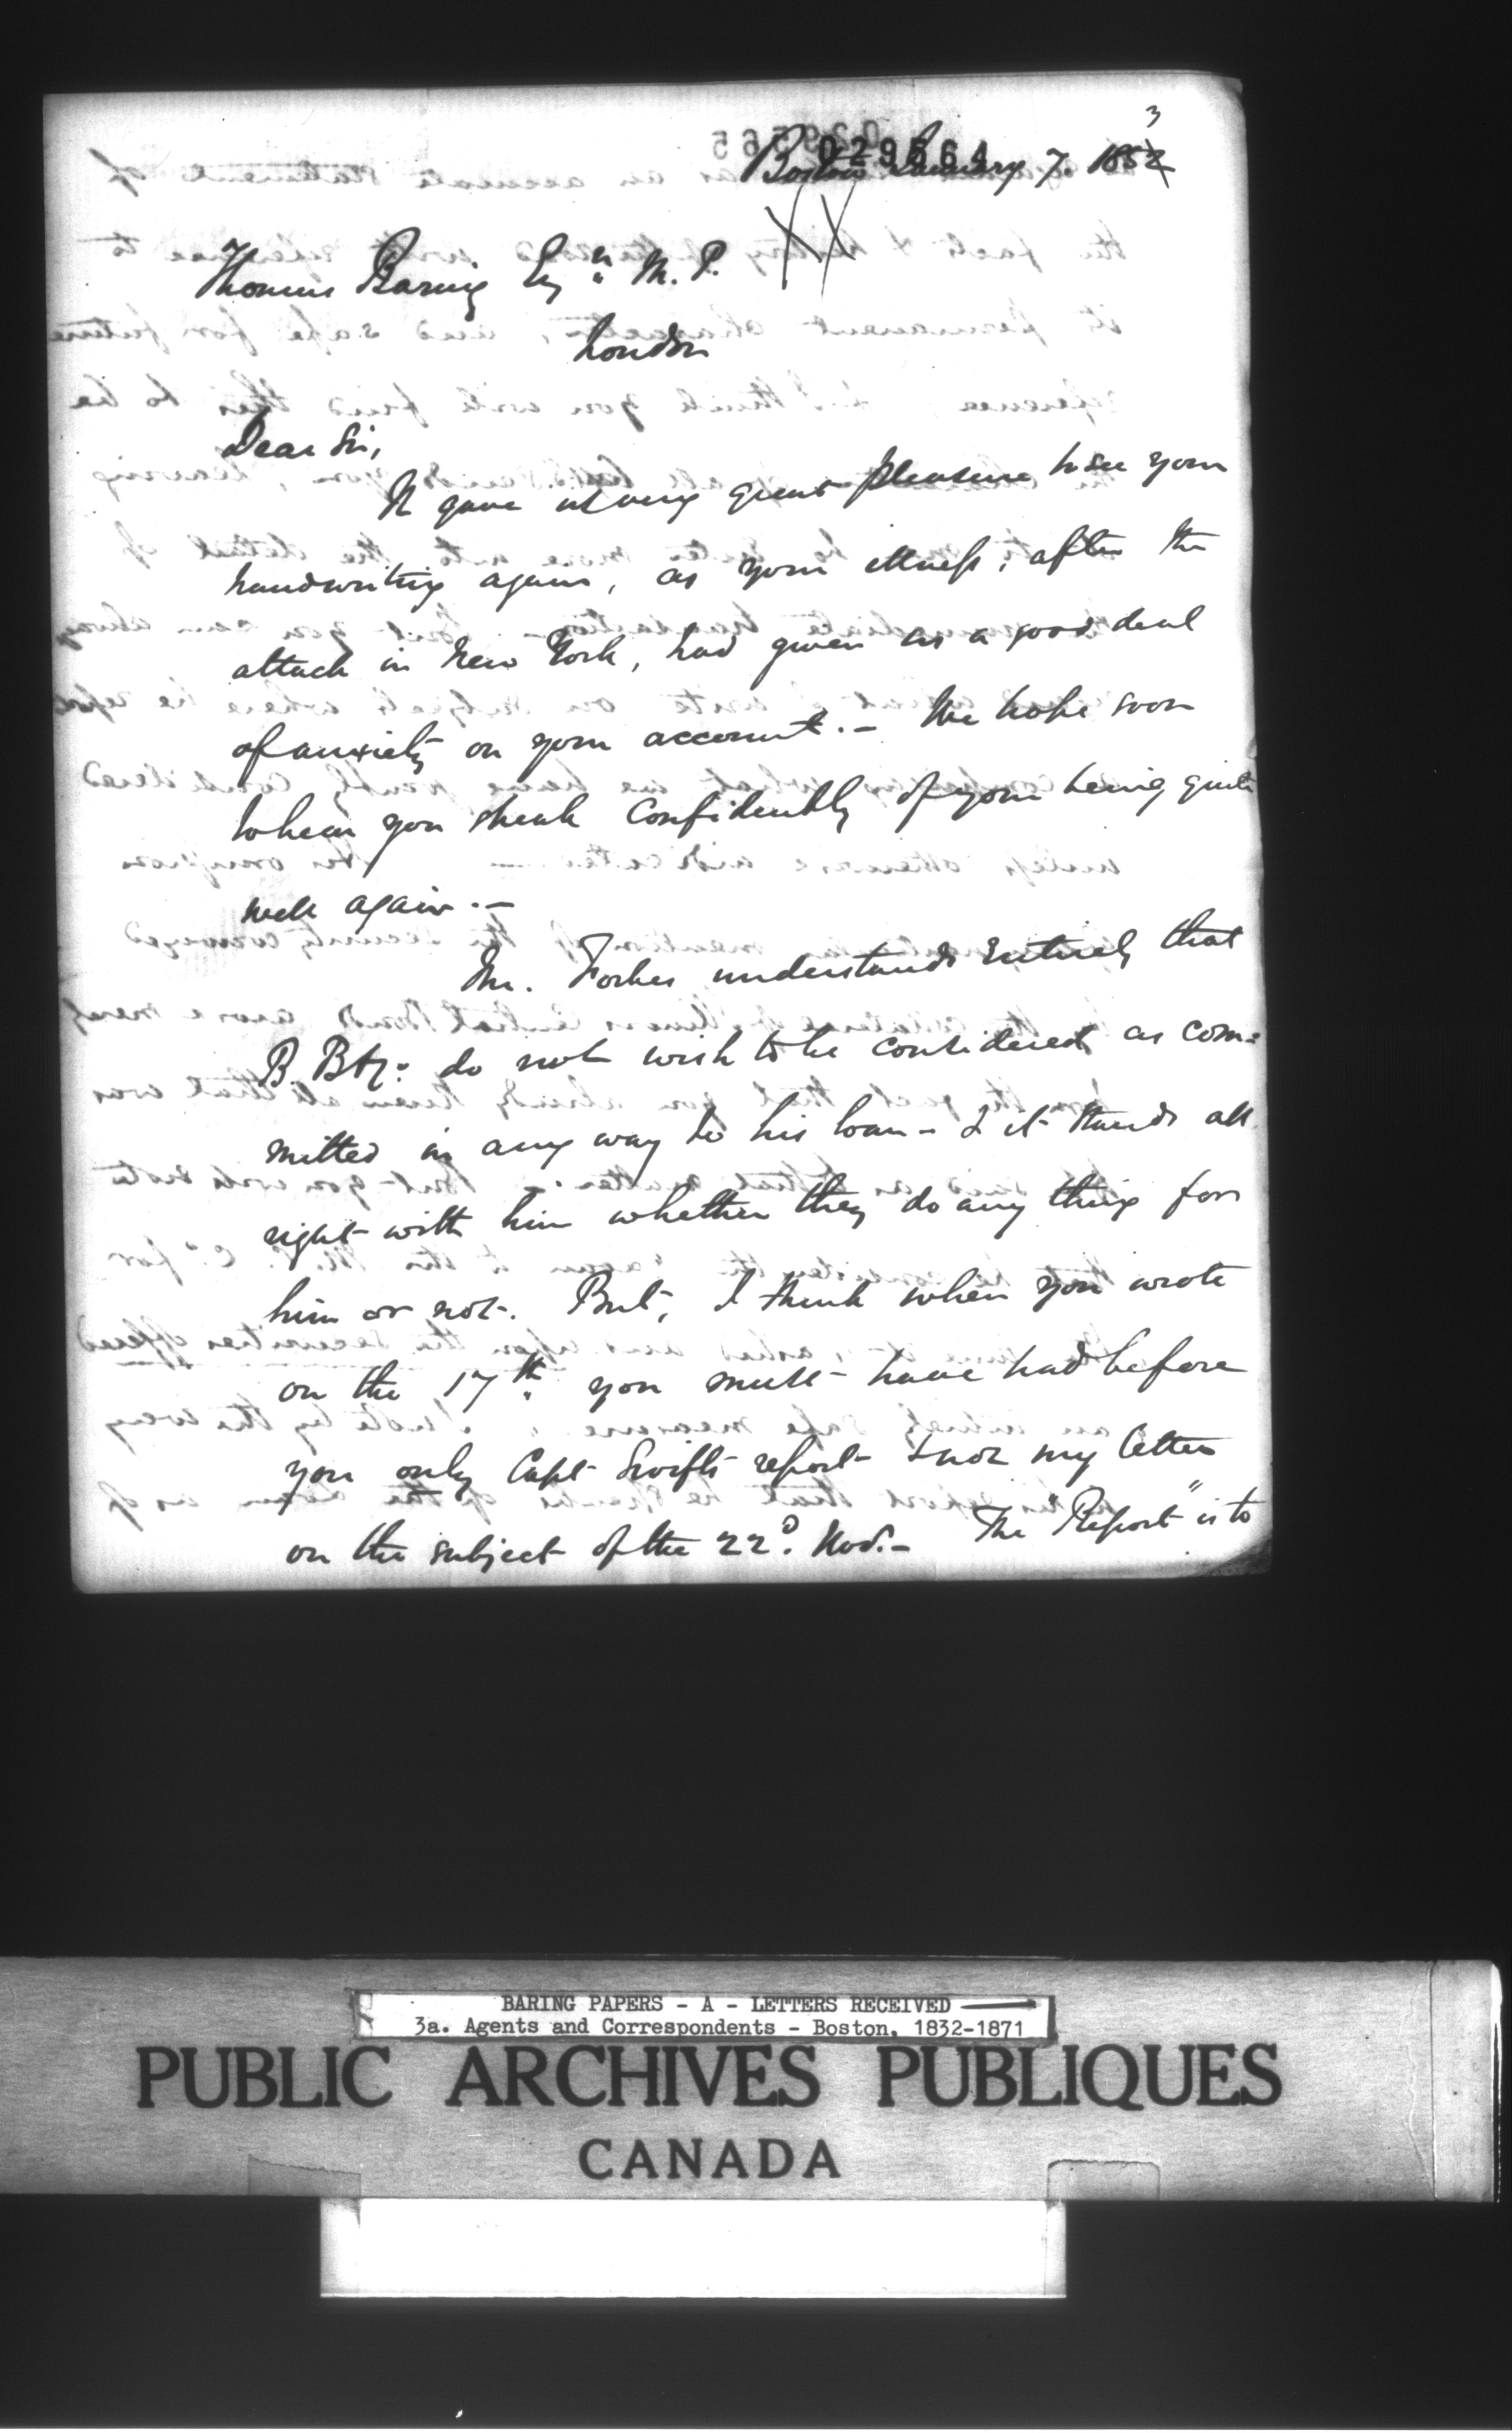 029564
Boston January 7. 1852
3
Thomas Baring Esqr. M. P.
London
Dear Sir,
It gave us very great pleasure to see your
handwriting again, as your illness, after the
attack in New York, had given us a good deal
of anxiety on your account. – We hope soon
to hear you speak confidently of your being quite
well again. –
Mr. Forbes understands entirely that
B. B & Co. do not wish to be considered as com=
mitted in any way to his loan – & it stands all
right with him whether they do any thing for
him or not. But, I think when you wrote
on the 17th. you must have had before
you only Capt Swift's report & not my letter
on the subject of the 22d. Nov. – The "Report" is to
BARING PAPERS - A - LETTERS RECEIVED
3a. Agents and Correspondents - Boston, 1832-1871
PUBLIC ARCHIVES PUBLIQUES
CANADA